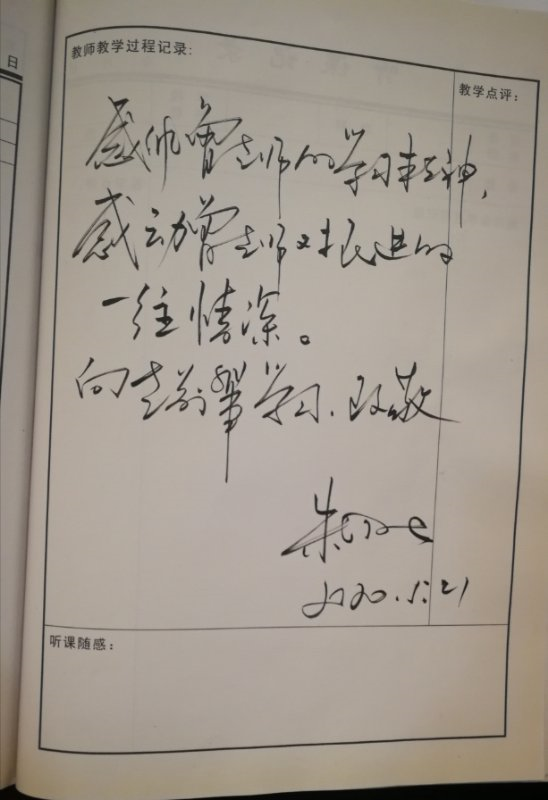 日
教师教学过程记录:
教学点评:
感佩曾老师的学习精神,
感动曾老师对民进的
一往情深。
向老前辈学习、致敬
朱
2020.5.21
听课随感: